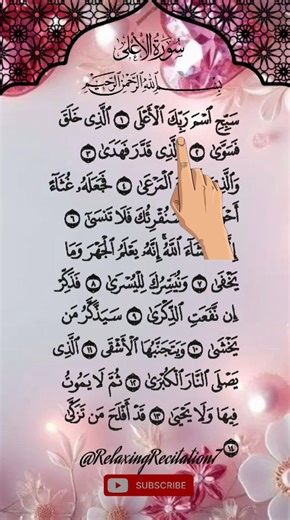 سورة الأعلى
بِسْمِ اللَّهِ الرَّحْمَٰنِ الرَّحِيمِ
سَبِّحِ ٱسْمَ رَبِّكَ ٱلْأَعْلَى ١ ٱلَّذِى خَلَقَ
فَسَوَّىٰ ٢ ٱلَّذِى قَدَّرَ فَهَدَىٰ ٣
وَٱلَّذِىٓ ٱلْمَرْعَىٰ ٤ فَجَعَلَهُۥ غُثَآءً
سَنُقْرِئُكَ فَلَا تَنسَىٰٓ ٦
شَآءَ ٱللَّهُ إِنَّهُۥ يَعْلَمُ ٱلْجَهْرَ وَمَا
يَخْفَىٰ ٧ وَنُيَسِّرُكَ لِلْيُسْرَىٰ ٨ فَذَكِّرْ
إِن نَّفَعَتِ ٱلذِّكْرَىٰ ٩ سَيَذَّكَّرُ مَن
يَخْشَىٰ ١٠ وَيَتَجَنَّبُهَا ٱلْأَشْقَى ١١ ٱلَّذِى
يَصْلَى ٱلنَّارَ ٱلْكُبْرَىٰ ١٢ ثُمَّ لَا يَمُوتُ
فِيهَا وَلَا يَحْيَىٰ ١٣ قَدْ أَفْلَحَ مَن تَزَكَّىٰ
١٤
@RelaxingRecitation7
SUBSCRIBE